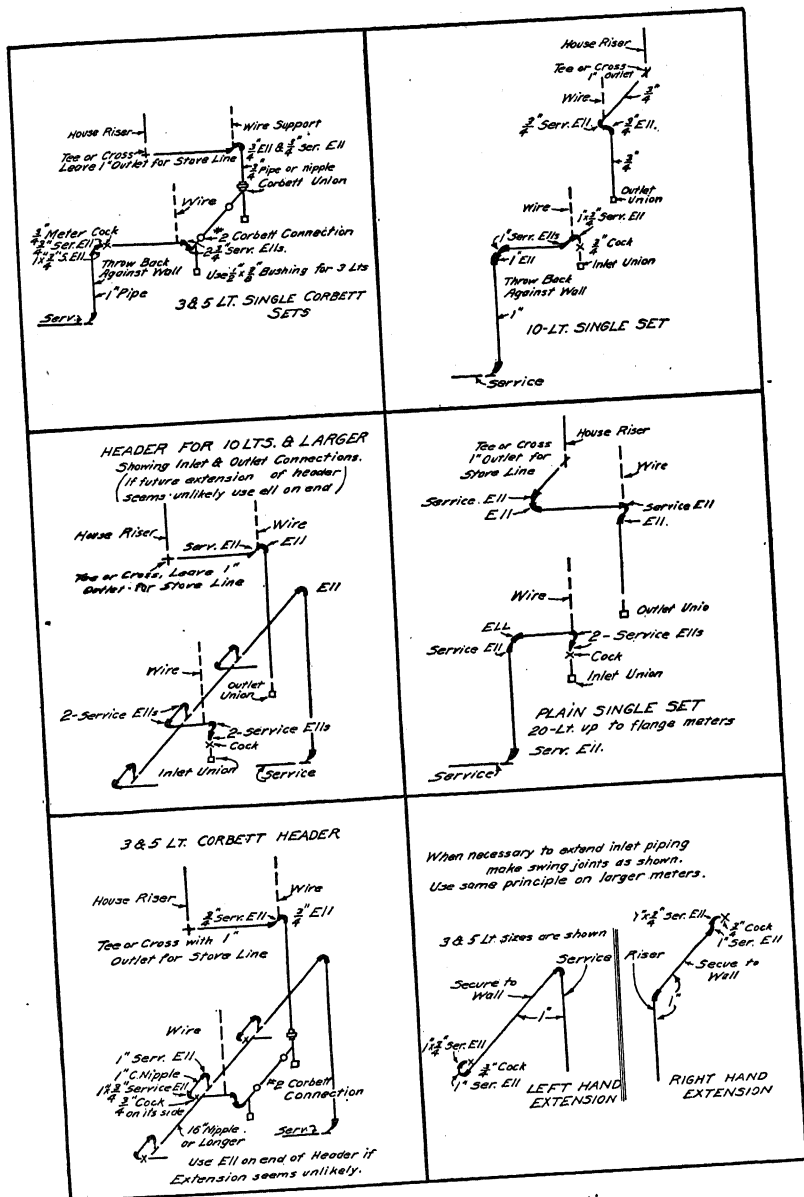 House Riser
Wire Support
Tee or Cross
Leave 1" Outlet for Stove Line
3/4" Ell & 3/4" Ser. Ell
3/4" Pipe or nipple
Corbett Union
Wire
3/4" Meter Cock
3/4" Ser. Ell
1"x3/4" S. Ell
#2 Corbett Connection
2 3/4" Serv. Ells.
Throw Back
Against Wall
1" Pipe
Serv.
3 & 5 LT. SINGLE CORBETT
SETS
House Riser
Tee or Cross
1" Outlet
Wire
3/4"
3/4" Serv. Ell
3/4" Ell.
3/4"
Outlet
Union
Wire
1"x3/4" Serv. Ell
1" Serv. Ells
3/4" Cock
1" Ell
Inlet Union
Throw Back
Against Wall
1"
10-LT. SINGLE SET
Service
HEADER FOR 10 LTS. & LARGER
Showing Inlet & Outlet Connections.
(If future extension of header
seems unlikely use ell on end)
House Riser
Wire
Serv. Ell
Ell
Tee or Cross, Leave 1"
Outlet for Stove Line
Ell
Wire
Outlet
Union
2-Service Ells
2-Service Ells
Cock
Inlet Union
Service
House Riser
Tee or Cross
1" Outlet for
Stove Line
Wire
Service Ell
Ell
Service Ell
Ell.
Wire
Outlet Unio
ELL
2-Service Ells
Service Ell
Cock
Inlet Union
PLAIN SINGLE SET
20-Lt. up to flange meters
Serv. Ell.
Service
3 & 5 LT. CORBETT HEADER
House Riser
Wire
3/4" Serv. Ell
3/4" Ell
Tee or Cross with 1"
Outlet for Stove Line
Wire
1" Serv. Ell
1" C. Nipple
1"x3/4" Service Ell
3/4" Cock
on its side
#2 Corbett
Connection
16" Nipple
or Longer
Serv.
Use Ell on end of Header if
Extension seems unlikely.
When necessary to extend inlet piping
make swing joints as shown.
Use same principle on larger meters.
3 & 5 Lt. sizes are shown
Service
Secure to
Wall
1"
1"x3/4" Ser. Ell
3/4" Cock
1" Ser. Ell
LEFT HAND
EXTENSION
1"x3/4" Ser. Ell
3/4" Cock
1" Ser. Ell
Riser
Secue to
Wall
1"
RIGHT HAND
EXTENSION